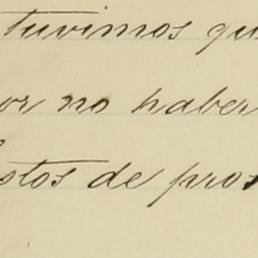 tuvimos qu
or no haber
stos de pros